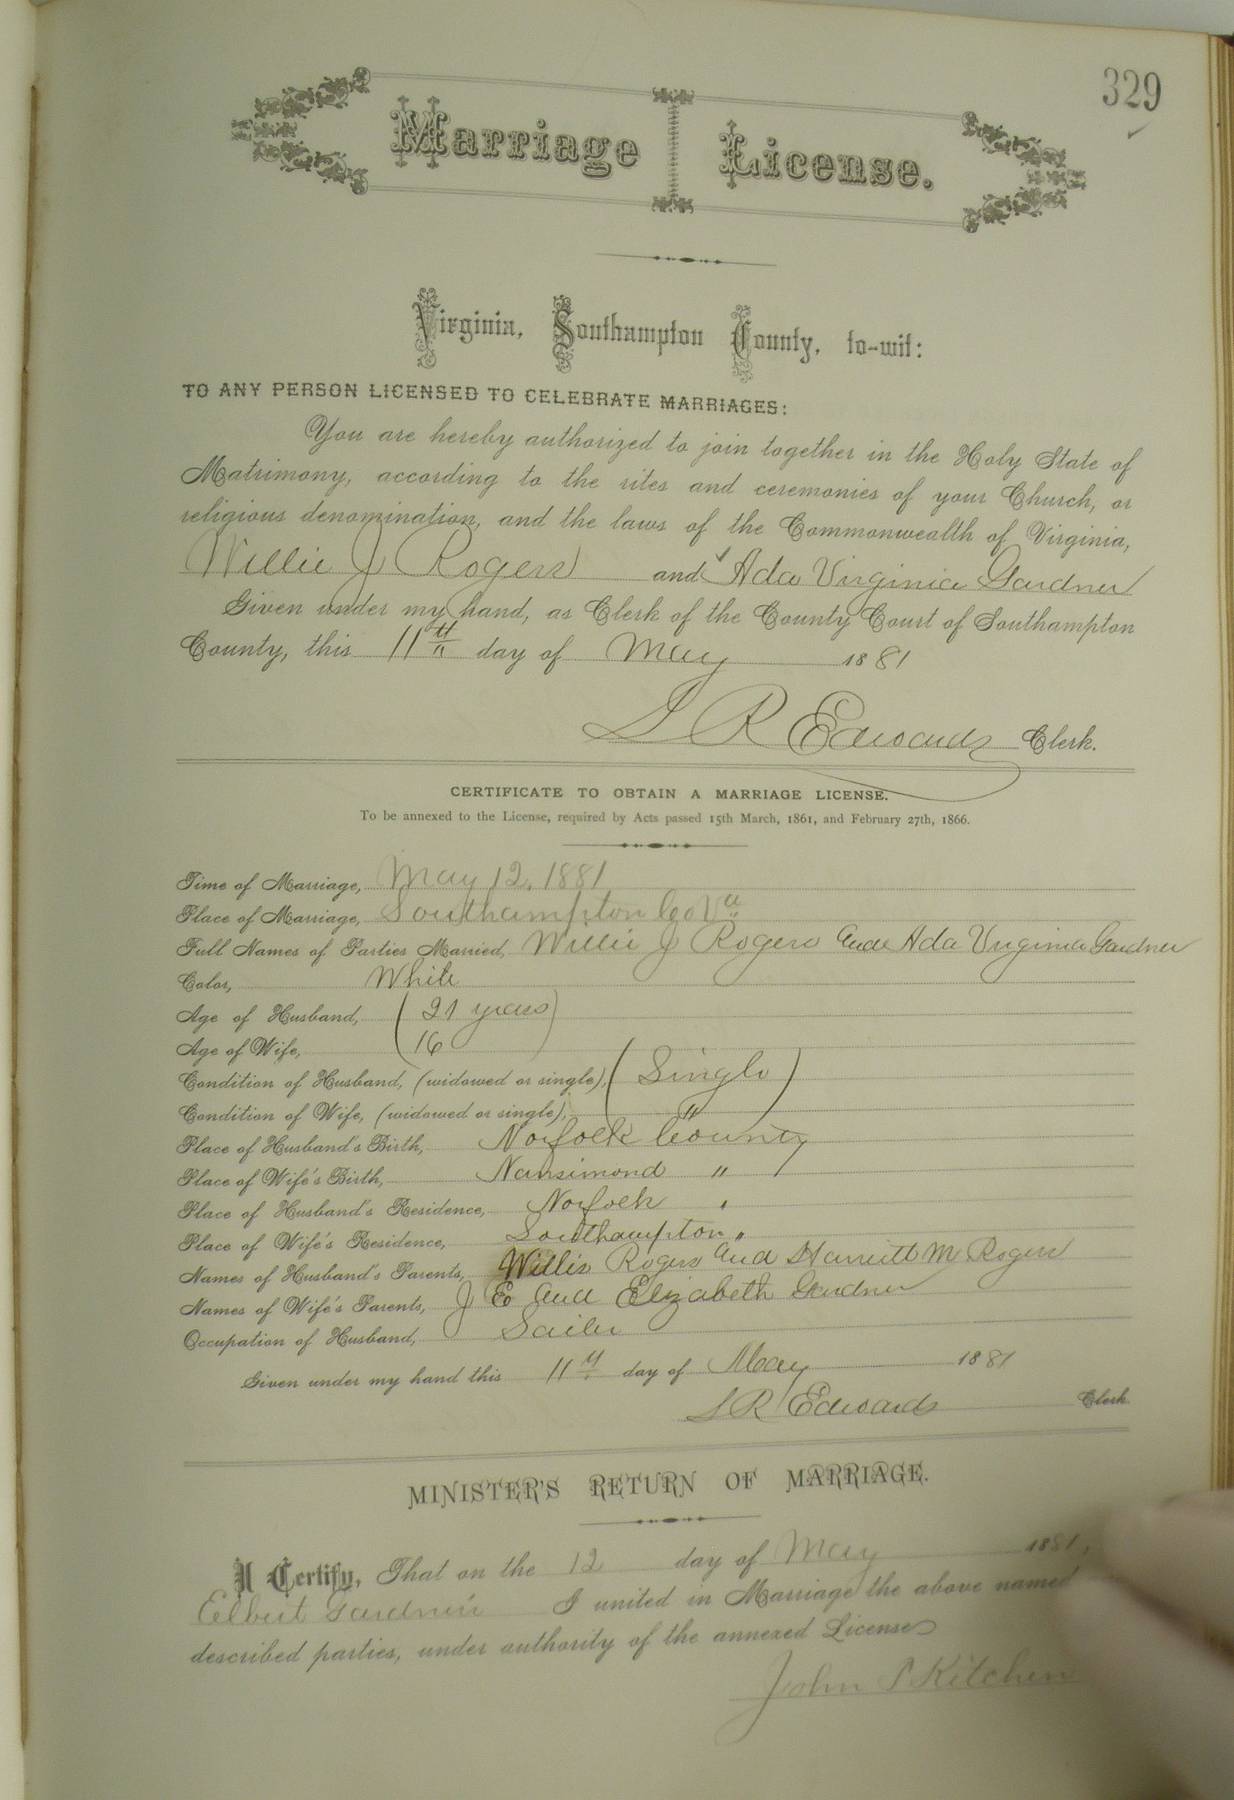 329
Marriage License.
Virginia, Southampton County, to-wit:
TO ANY PERSON LICENSED TO CELEBRATE MARRIAGES:
You are hereby authorized to join together in the Holy State of
Matrimony, according to the rites and ceremonies of your Church, or
religious denomination, and the laws of the Commonwealth of Virginia,
Willie J Rogers and Ada Virginia Gardner
Given under my hand, as Clerk of the County Court of Southampton
County, this 11th day of May 1881
L R Edwards Clerk.
CERTIFICATE TO OBTAIN A MARRIAGE LICENSE.
To be annexed to the License, required by Acts passed 15th March, 1861, and February 27th, 1866.
Time of Marriage, May 12, 1881
Place of Marriage, Southampton Co Va
Full Names of Parties Married, Willie J Rogers and Ada Virginia Gardner
Color, White
Age of Husband, (21 years)
Age of Wife, 16
Condition of Husband, (widowed or single), (Single)
Condition of Wife, (widowed or single), "
Place of Husband's Birth, Norfolk County
Place of Wife's Birth, Nansimond "
Place of Husband's Residence, Norfolk "
Place of Wife's Residence, Southampton "
Names of Husband's Parents, Willis Rogers and Harriett M Rogers
Names of Wife's Parents, J E and Elizabeth Gardner
Occupation of Husband, Sailor
Given under my hand this 11th day of May 1881
L R Edwards Clerk
MINISTER'S RETURN OF MARRIAGE.
I Certify, That on the 12 day of May 1881,
Elbert Gardner's I united in Marriage the above named
described parties, under authority of the annexed License
John Kitchen